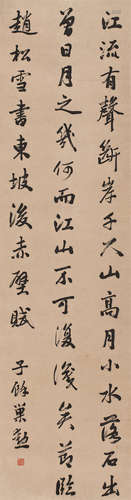 江流有聲斷岸千尺山高月小水落石出
曾日月之幾何而江山不可復識矣節臨
趙松雪書東坡後赤壁賦
子餘巢勳